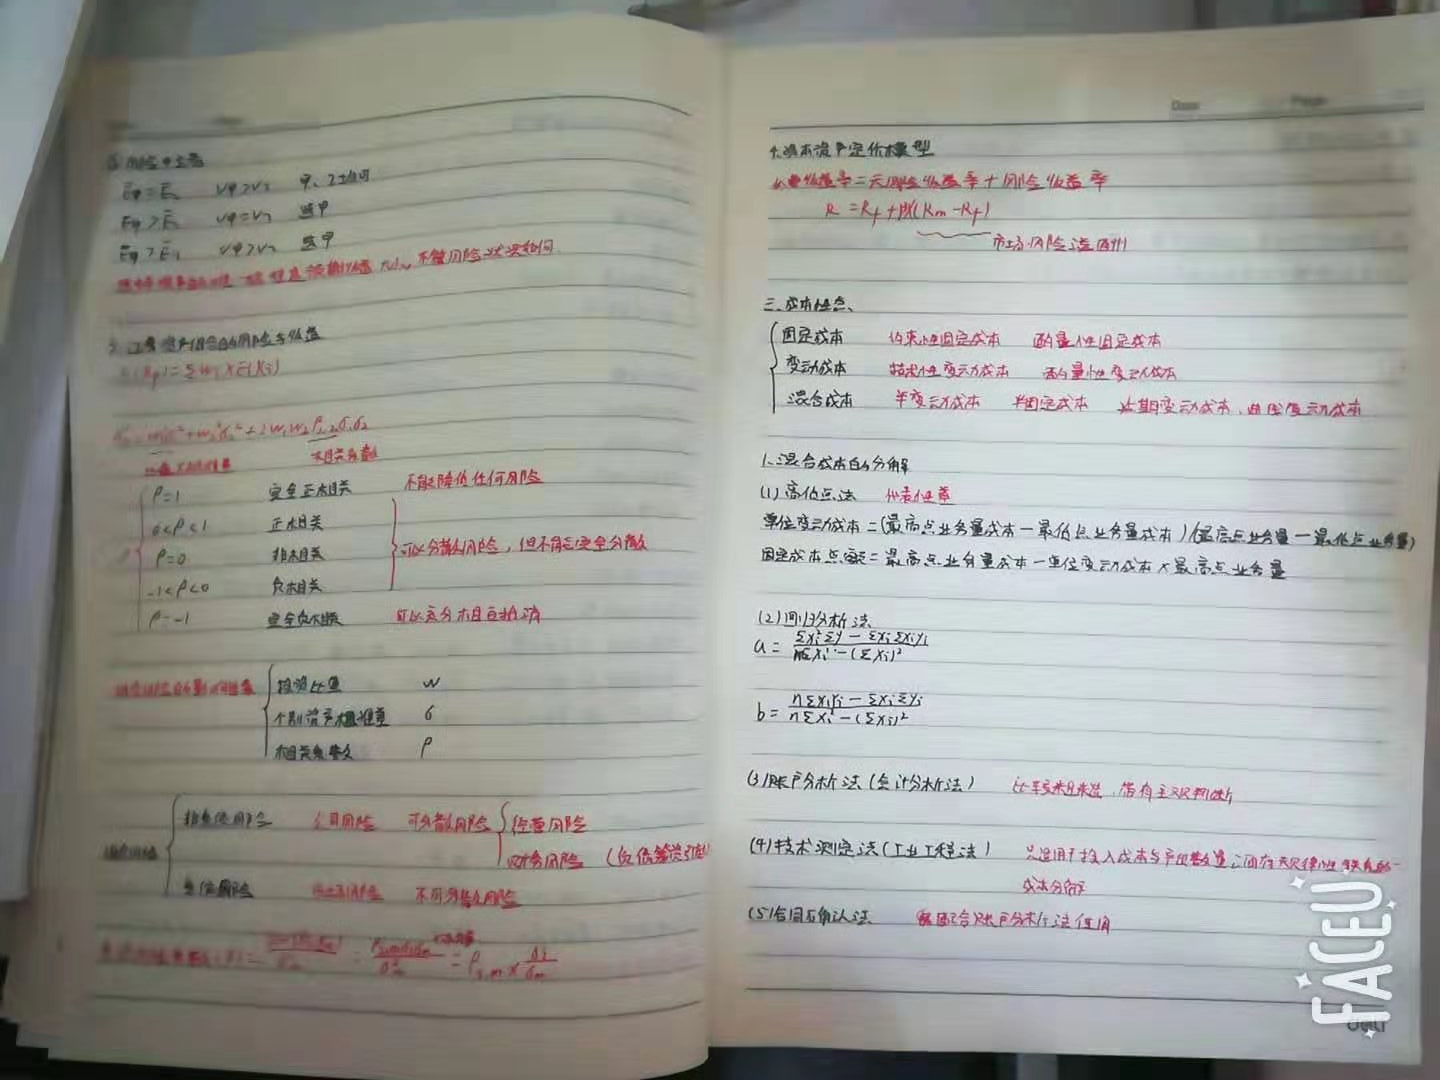 风险中立者
E甲=E乙 V甲>V乙 甲、乙均可
E甲>E乙 V甲=V乙 选甲
E甲>E乙 V甲>V乙 选甲
不管风险状况如何
3.证券资产组合的风险与收益
E(Rp)=ΣWi×E(Ri)
+2W₁W₂ρ₁,₂σ₁σ₂
相关系数
ρ=1 完全正相关 不能降低任何风险
0<ρ<1 正相关
ρ=0 非相关 可以分散风险,但不能完全分散
-1<ρ<0 负相关
ρ=-1 完全负相关 可以充分相互抵消
投资比重 W
个别资产标准差 σ
相关系数 ρ
公司风险 可分散风险 经营风险
财务风险
系统风险 市场风险 不可分散风险
=ρi,m×σi/σm
Date Page
4.资本资产定价模型
必要收益率=无风险收益率+风险收益率
R=Rf+β×(Rm-Rf)
市场风险溢酬
三.成本性态、
固定成本 约束性固定成本 酌量性固定成本
变动成本 技术性变动成本 酌量性变动成本
混合成本 半变动成本 半固定成本 延期变动成本、曲线变动成本
1.混合成本的分解
(1)高低点法 代表性差
单位变动成本=(最高点业务量成本-最低点业务量成本)/(最高点业务量-最低点业务量)
固定成本总额=最高点业务量成本-单位变动成本×最高点业务量
(2)回归分析法
a=(ΣXi²ΣY-ΣXiΣXiYi)/(nΣXi²-(ΣXi)²)
b=(nΣXiYi-ΣXiΣYi)/(nΣXi²-(ΣXi)²)
(3)账户分析法(会计分析法) 比较粗糙,带有主观判断
(4)技术测定法(工业工程法) 只适用于投入成本与产出数量之间有规律性联系的
成本分解
(5)合同确认法 配合账户分析法使用
FACEU
deli